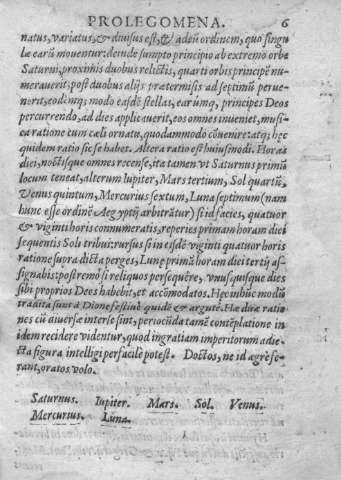 PROLEGOMENA. 6
natus, variatus, & diuisus est, & adeũ ordinem, quo singu
læ earũ mouentur: deinde sumpto principio ab extremo orbe
Saturni, proximis duobus relictis, quarti orbis principẽ nu-
merauerit, post duobus alijs prætermissis ad septimũ perue-
nerit, eodemq; modo easdẽ stellas, earũmq, principes Deos
percurrendo, ad dies applicauerit, eos omnes inueniet, musi-
ca ratione cum cæli ornatu, quodammodo cõuenire: atq; hęc
quidem ratio sic se habet. Altera ratio est huiusmodi. Horas
diei, noctisque omnes recense, ita tamen vt Saturnus primũ
locum teneat, alterum Iupiter, Mars tertium, Sol quartũ,
Venus quintum, Mercurius sextum, Luna septimum (nam
hunc esse ordinẽ Aegyptij arbitrãtur) si id facies, quatuor
& viginti horis connumeratis, reperies primam horam diei
sequentis Soli tribui: rursus si in eisdẽ viginti quatuor horis
ratione supra dicta perges, Lunę primã horam diei tertij as-
signabis: postremò si reliquos persequêre, vnusquisque dies
sibi proprios Deos habebit, et accõmodatos. Hęc in hũc modũ
tradita sunt à Dione festiuè quidẽ & argutè. Hæ duæ ratio
nes cũ aiuersæ inter se sint, periocũda tamẽ contẽplatione in
idem recidere videntur, quod in gratiam imperitorum adie-
cta figura intelligi perfacilè potest. Doctos, ne id ægrè fe-
rant, oratos volo.
Saturnus. Iupiter. Mars. Sol. Venus.
Mercurius. Luna.